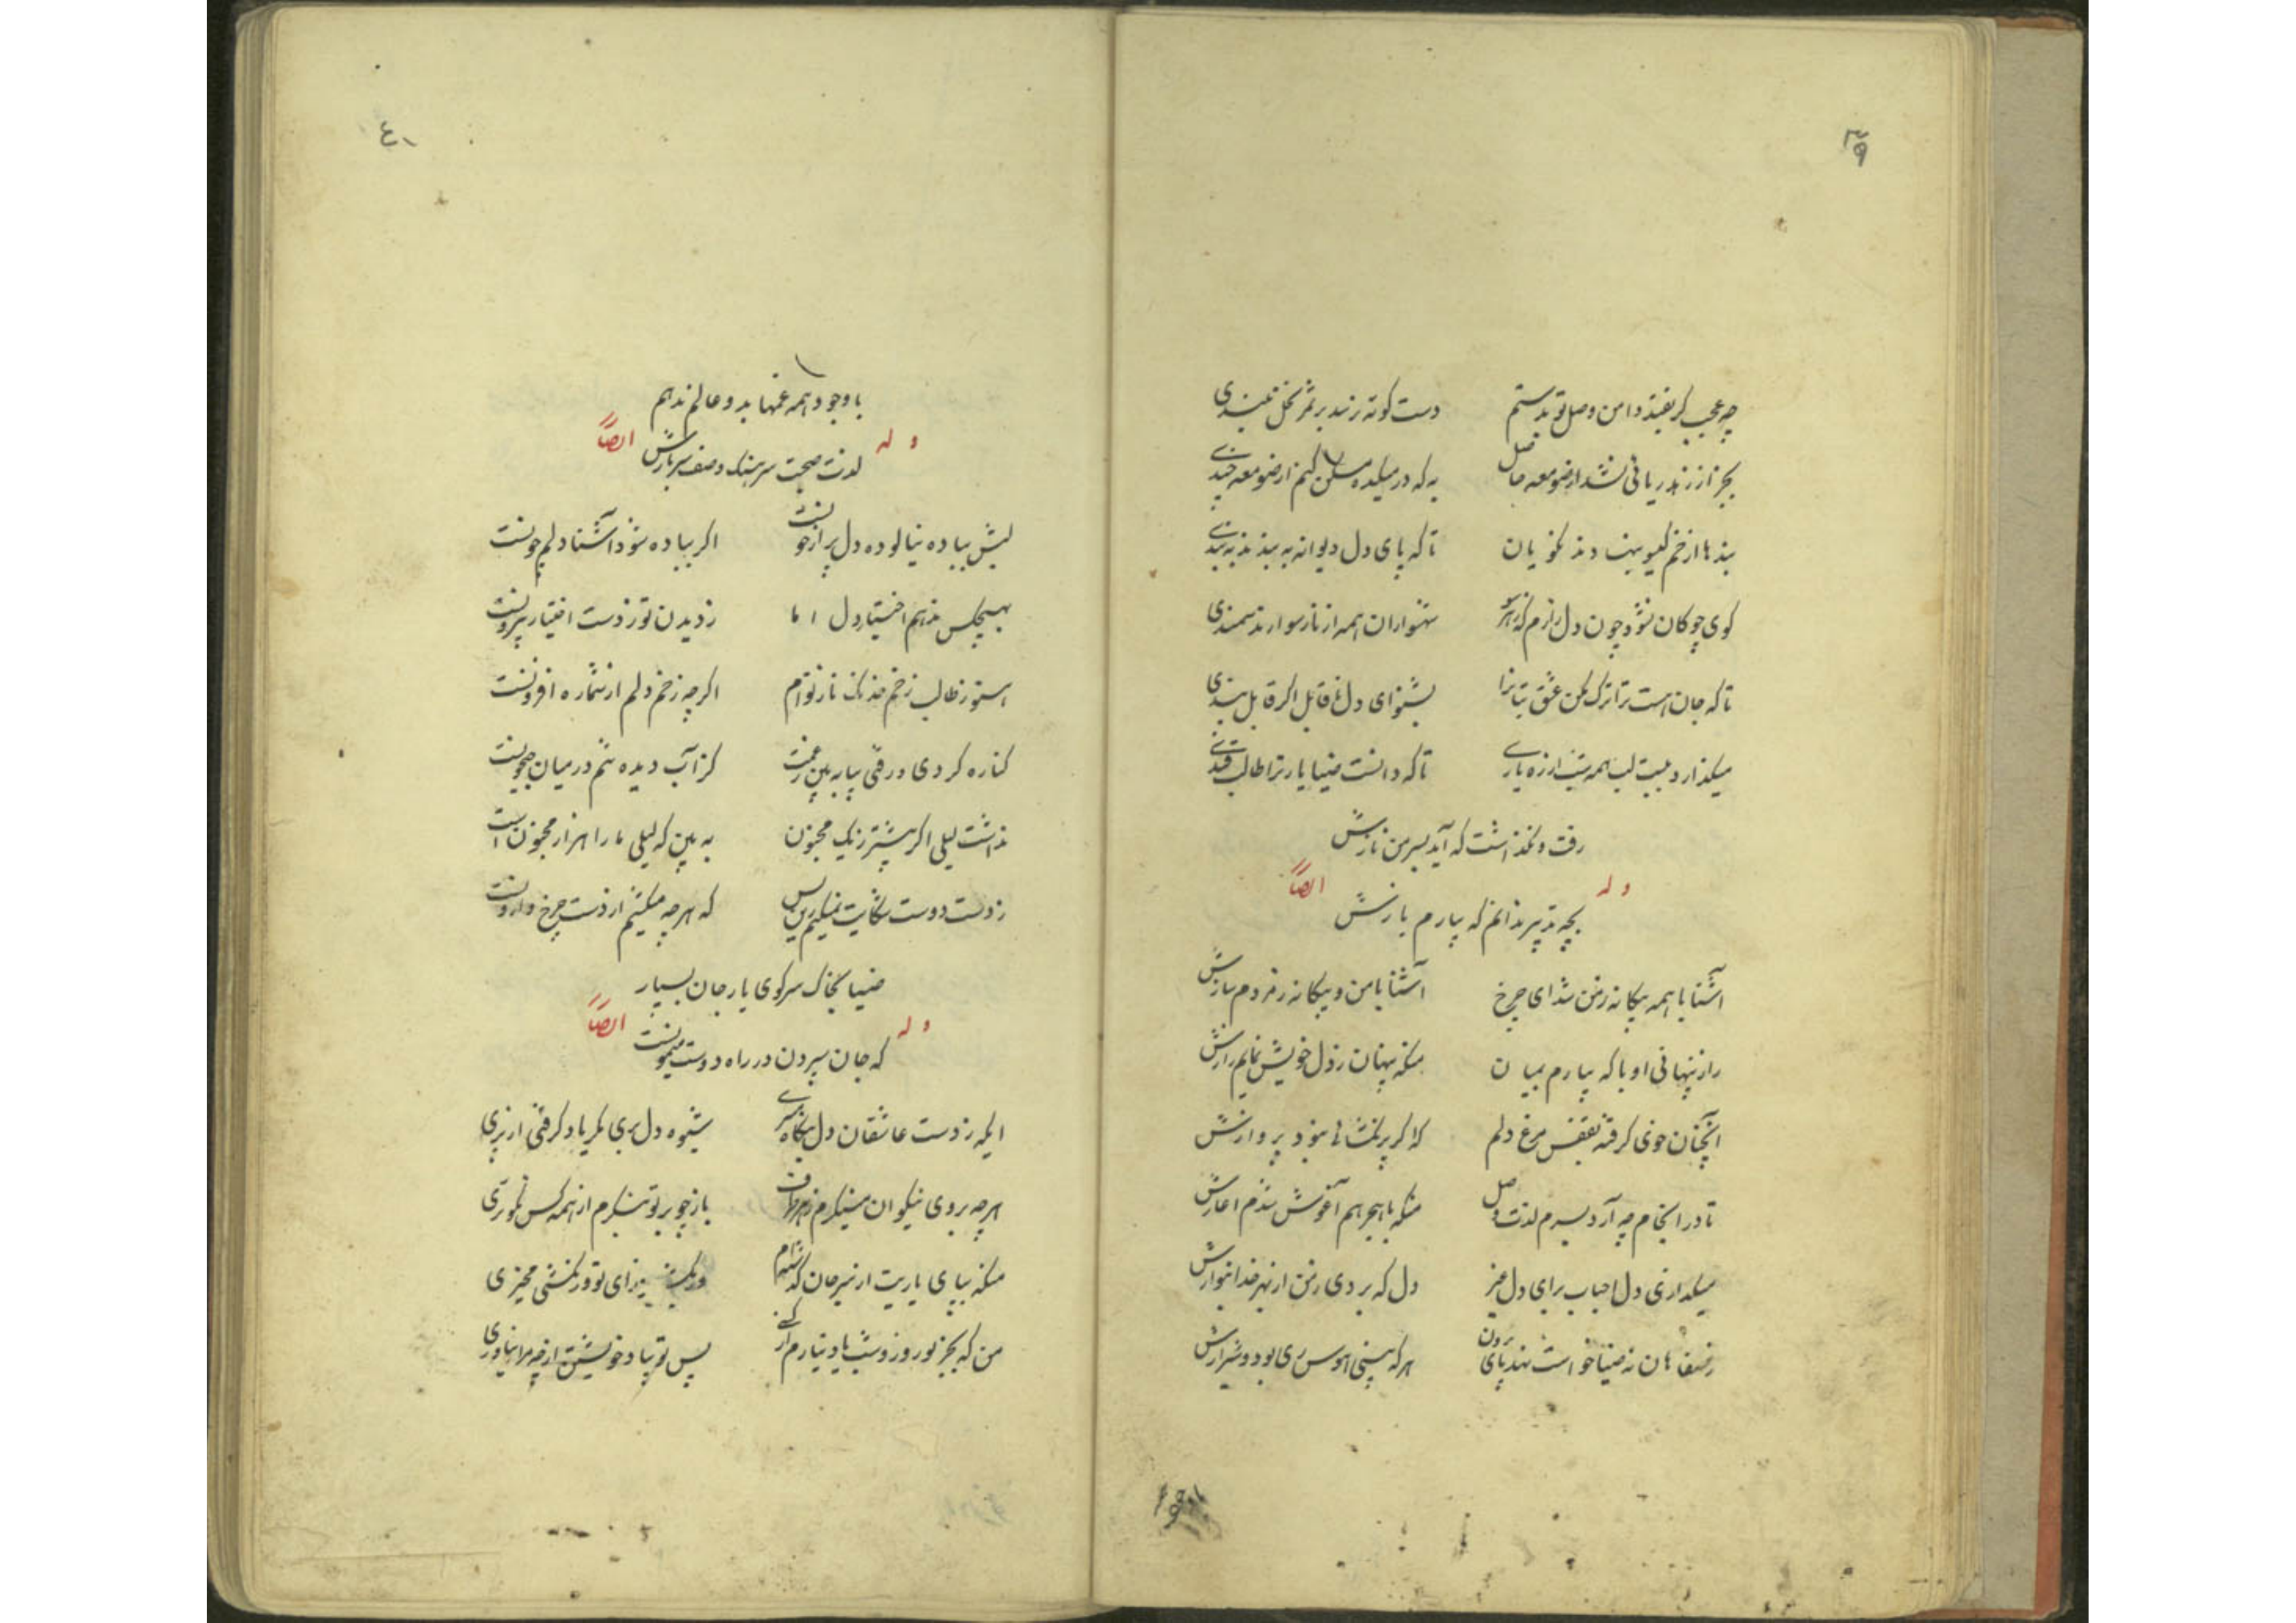 ۳۹
چه عجب گر بفتد دامن وصل تو بدستم
دست کوته نرسد بر ثمر نخل بلندی
بجز از زرند ریائی نشد از صومعه حاصل
به که در میکده مسکن کنم از صومعه چندی
بندها از خم گیسو بنهادند نکویان
تا که پای دل دیوانه به بندند به بندی
کوی چوکان شود چون دل زارم که بهر سو
شهسواران همه از ناز سوارند سمندی
تا که جان است ترا ترک مکن عشق بتانرا
بشنو ای دل قابل اگر قابل پندی
میگذارد لب همه شب از ره یاری
تا که دانست ضیا یار ترا طالب قندی
رفت و نگذاشت که آید بسر من نازش
وله ایضاً
بچه تدبیر ندانم که بیارم بازش
آشنا با همه بیکانه ز من شد ای چرخ
آشنا با من و بیکانه ز مردم سازش
راز پنهانی او با که بیارم بمیان
منکه پنهان ز دل خویش نمایم رازش
آنچنان خوی گرفته بقفس مرغ دلم
که اگر پر بگشائی نبود پروازش
تا در انجام چه آرد بسرم لذت وصل
منکه با هجر هم آغوش شدم آغازش
میکدازی دل احباب برای دل غیر
دل که بردی ز من از بهر خدا بنوازش
ز ضیا خواست نهد پای برون
هر که بینی هوس ری بود و شیرازش
۴۱
با وجود همه غمها بدو عالم ندهم
وله ایضاً
لذت صحبت سرهنگ و صف سربازش
لبش بباده نیالوده دل پر از خونست
اگر بباده شود آشنا دلم چونست
بهیچکس ندهم اختیار دل اما
ز دیدن تو ز دست اختیار بیرونست
هنوز طالب زخم خدنک ناز توام
اگر چه زخم دلم از شماره افزونست
کناره کردی و رفتی بیا به بین ز غمت
کز آب دیده تنم در میان جیحونست
نداشت لیلی اگر بیشتر ز یک مجنون
به بین که لیلی ما را هزار مجنون است
ز دست دوست شکایت نمیکنم زین پس
که هر چه میکشم از دست چرخ وارونست
ضیا بخاک سر کوی یار جان بسپار
وله ایضاً
که جان سپردن در راه دوست میمونست
ایکه ز دست عاشقان دل بنگاه میبری
شیوه دل بری مگر یاد گرفتی از پری
هر چه بروی نیکوان مینگرم ز هر طرف
باز چو بر تو بنگرم از همه کس نکوتری
منکه بپای یاریت از سر جان گذشته‌ام
من که بجز تو روز و شب یاد نیارم از کسی
پس تو بیاد خویشتن از چه مرا نیاوری